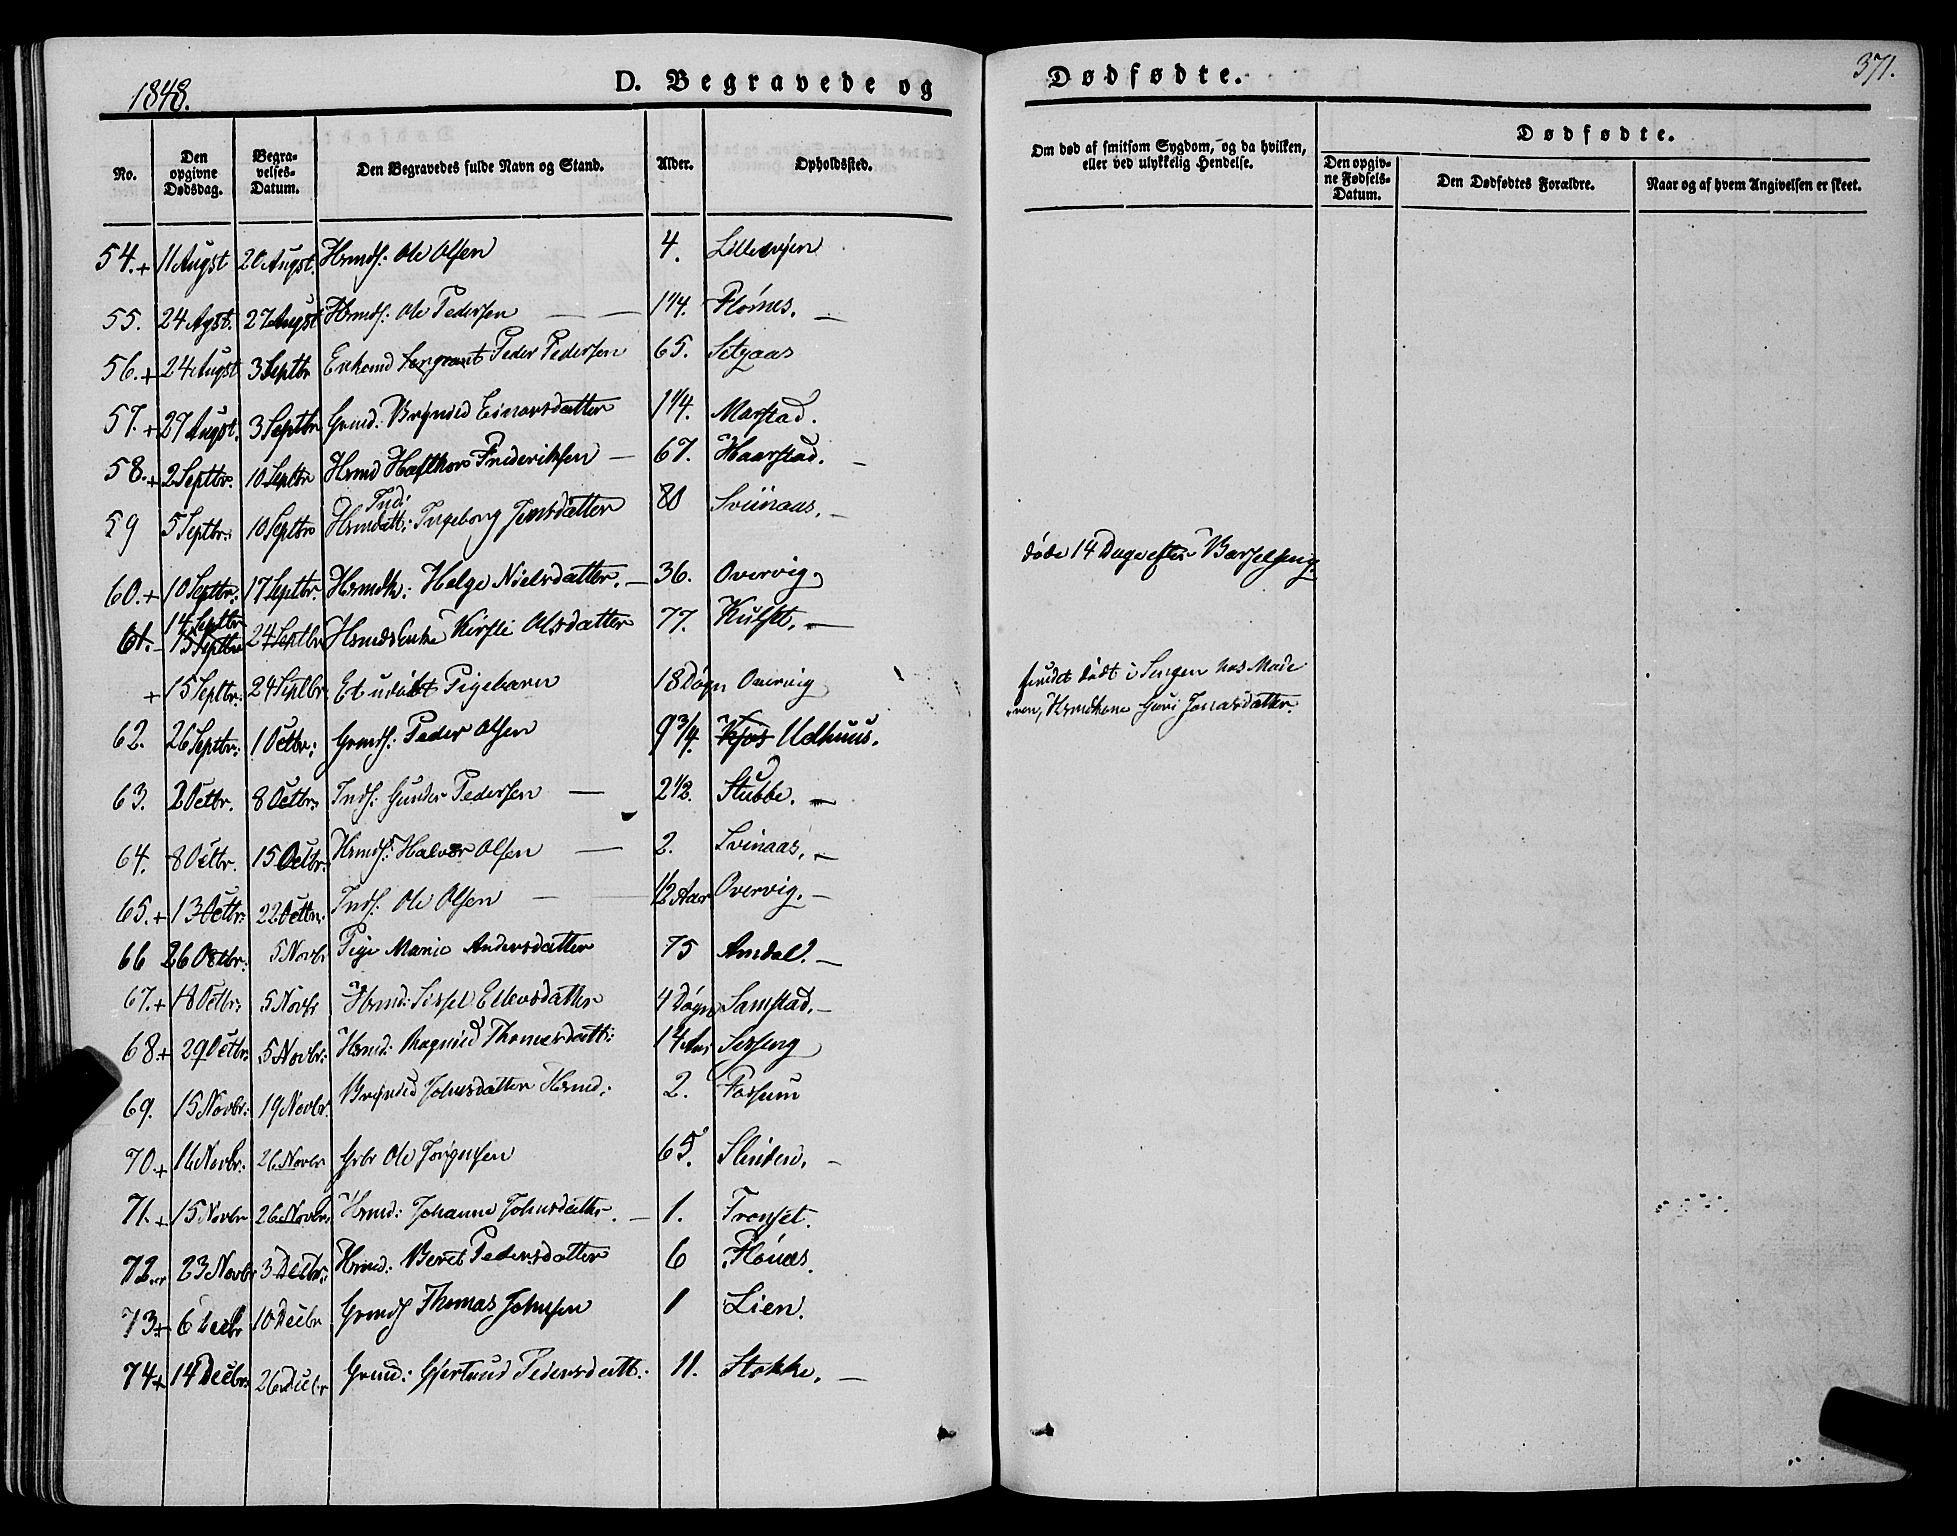 1848.
D. Begravede og Dødfødte.
371.
No.
Den opgivne Dødsdag.
Begravelses-Datum.
Den Begravedes fulde Navn og Stand.
Alder.
Opholdssted.
Om død af smitsom Sygdom, og da hvilken, eller ved ulykkelig Hendelse.
Dødfødte.
Den opgivne Fødsels-Datum.
Den Dødfødtes Forældre.
Naar og af hvem Angivelsen er skeet.
54.+ 11 Augst 20 Augst. Hsmds: Ole Olsen 4.
55. 24 Agst. 27 Augst Hsmds: Ole Pedersen — — 1 1/4. Flornes. —
56.+ 24 Augst 3 Septbr Enkemd Sergeant Peder Pedersen 65. Setsaas
57.+ 27 Augst. 3 Septbr Grmd: Brynild Einarsdatter 1 1/4. Marstad.
58.+ 2 Septbr. 10 Septbr Hsmd Hafthor Frederiksen — 67. Haarstad. —
59 5 Septbr: 10 Septbr Ind: Ingeborg Jensdatter 80 Sviinaas. —
60.+ 10 Septbr: 17 Septbr. Hsmdk: Helge Nielsdatter. — 36. Overvig. døde 14 Dage efter Barselseng.
61. 14 Septbr 15 Septbr 24 Septbr Hsmds Enke Kirsti Olsdatter 77. Kulset. —
+ 15 Septbr: 24 Septbr. Et udøbt Pigebarn 18 Døgn Overvig fundet dødt i Sengen hos Moderen, Hsmdkone Guri Jonasdatter.
62. 26 Septbr: 1 Octbr: Grmds: Peder Olsen 9 3/4. Kjos Udhuus.
63. 2 Octbr. 8 Octbr: Inds: Gunder Pedersen — 2 1/2. Stubbe. —
64. 8 Octbr. 15 Octbr: Hsmds: Halvor Olsen — 2. Svinaas. —
65.+ 13 Octbr: 22 Octbr. Inds: Ole Olsen — 1/2 Aar Overvig. —
66 26 Octbr: 5 Novbr Pige Marie Andersdatter 75 Amdal. —
67.+ 18 Octbr: 5 Novbr Hsmd: Sissel Ellevsdatter 4 Døgn Samstad. —
68+ 29 Octbr: 5 Novbr: Hsmd: Magnild Thomesdatt: 14 Sesseng
69. 15 Novbr: 19 Novbr. Brynild Johnsdatter Hsmd: 2. Fossum
70.+ 16 Novbr: 26 Novbr Grbr Ole Jørgensen 65. —
71.+ 15 Novbr 26 Novbr. Hsmd: Johanne Johnsdatter. — 1. Fronset.
72. 23 Novbr 3 Decbr: Hsmd: Beret Pedersdatter 6 Flones.
73+ 6 Decbr 10 Decbr Grmds Thomas Johnsen 1 Lien.
74+ 14 Decbr: 26 Decbr Grmd: Gjertrud Pedersdatt: 11. Stokke. —